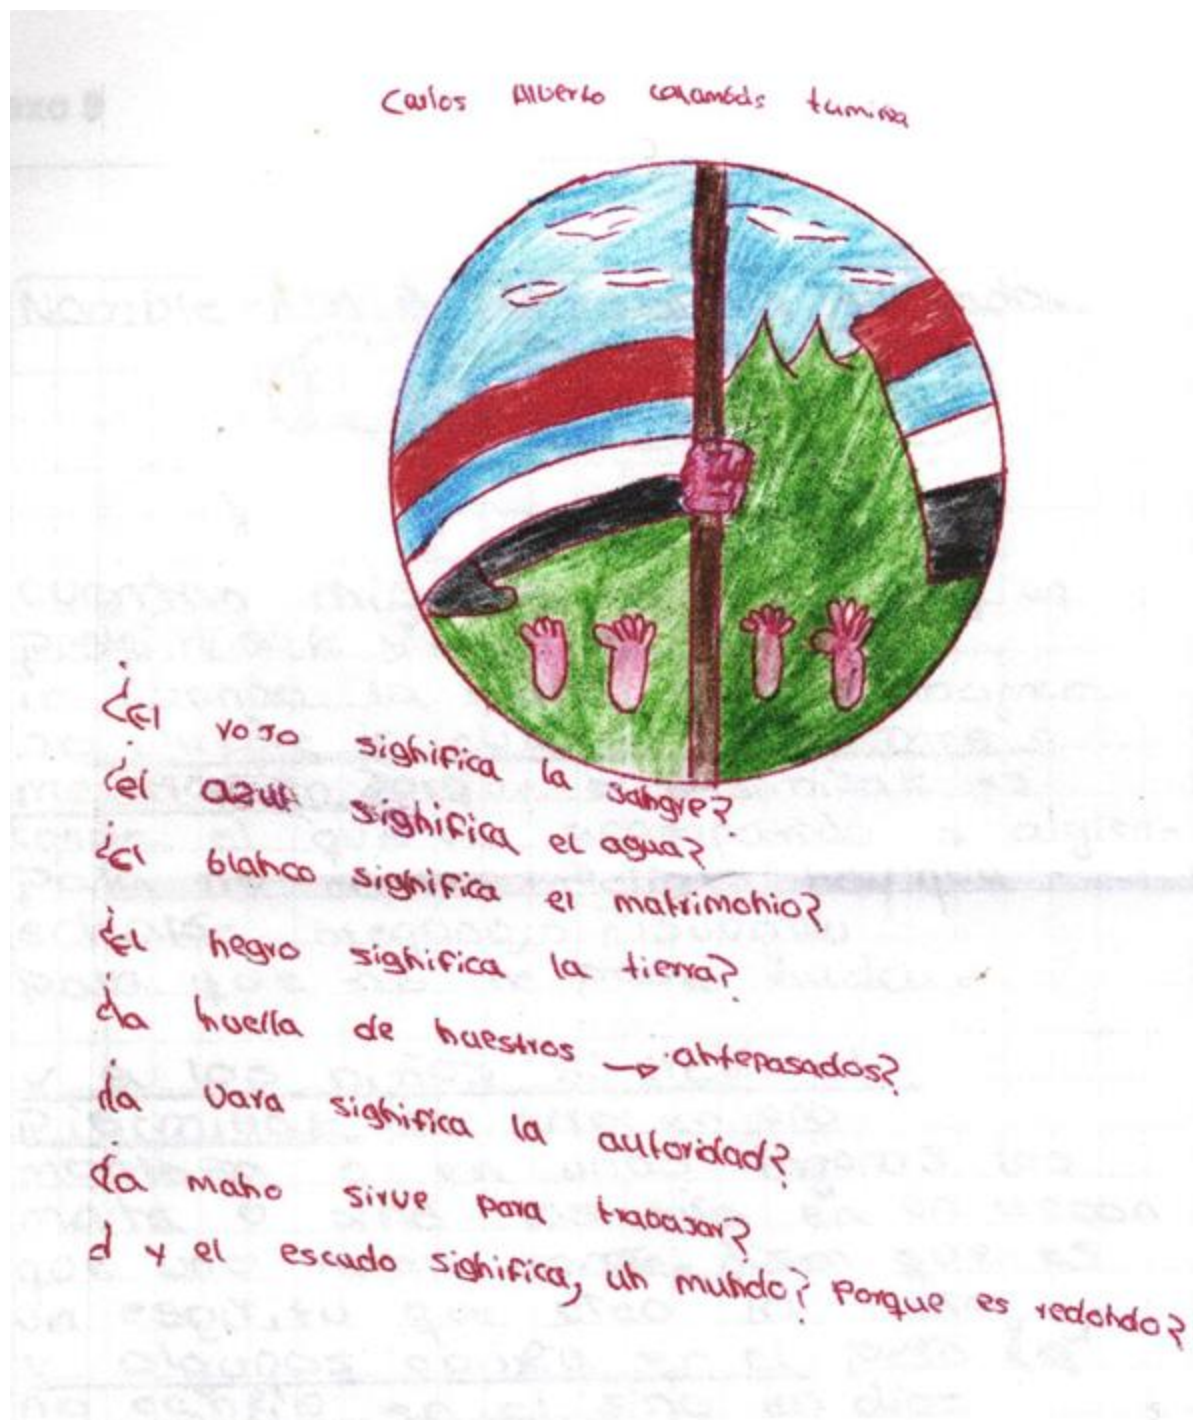 Carlos Alberto calambas tumiña
¿El rojo significa la sangre?
¿el azul significa el agua?
¿El blanco significa el matrimonio?
¿El negro significa la tierra?
¿la huella de nuestros → antepasados?
¿la vara significa la autoridad?
¿la mano sirve para trabajar?
¿ y el escudo significa, un mundo? porque es redondo?